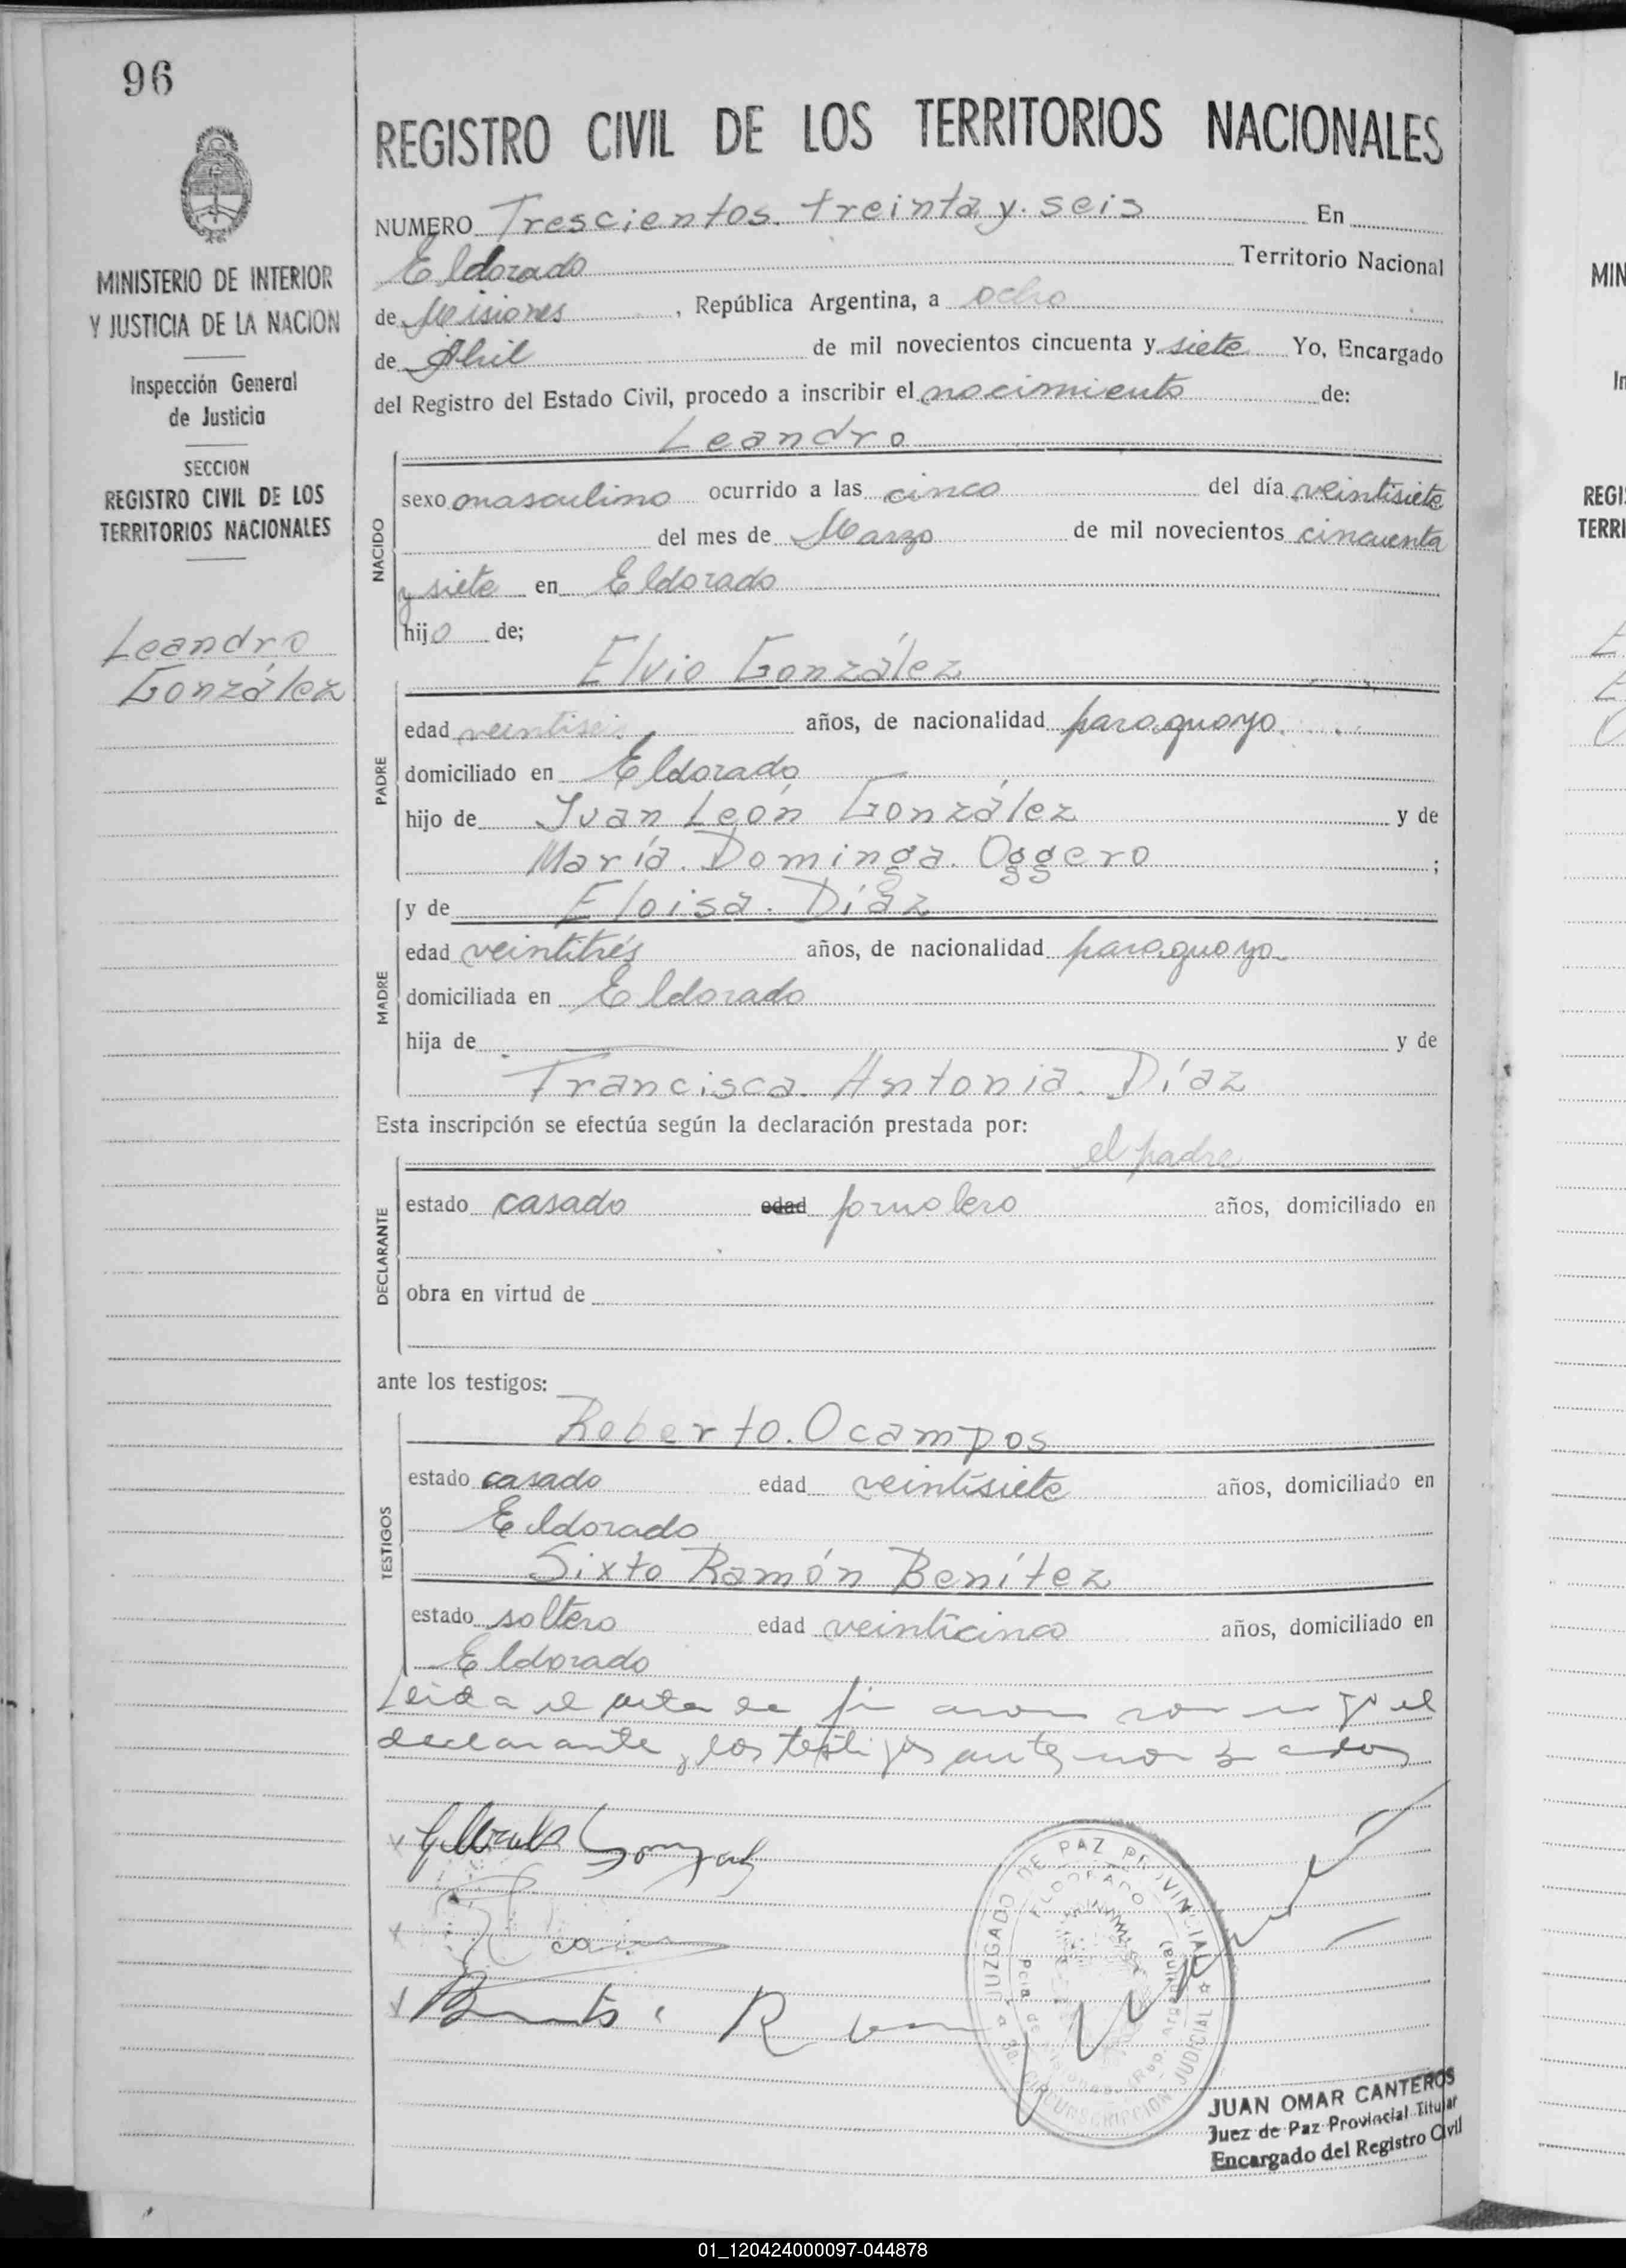 96
MINISTERIO DE INTERIOR
Y JUSTICIA DE LA NACION
Inspección General
de Justicia
SECCION
REGISTRO CIVIL DE LOS
TERRITORIOS NACIONALES
Leandro
González
REGISTRO CIVIL DE LOS TERRITORIOS NACIONALES
NUMERO Trescientos treinta y seis En
Eldorado Territorio Nacional
de Misiones, República Argentina, a ocho
de Abril de mil novecientos cincuenta y siete Yo, Encargado
del Registro del Estado Civil, procedo a inscribir el nacimiento de:
Leandro
NACIDO
sexo masculino ocurrido a las cinco del día veintisiete
del mes de Marzo de mil novecientos cincuenta
y siete en Eldorado
hijo de;
Elvio González
PADRE
edad veintiseis años, de nacionalidad paraguayo
domiciliado en Eldorado
hijo de Juan León González y de
María Dominga Oggero ;
MADRE
y de Eloisa Díaz
edad veintitrés años, de nacionalidad paraguaya
domiciliada en Eldorado
hija de y de
Francisca Antonia Díaz
Esta inscripción se efectúa según la declaración prestada por:
el padre
DECLARANTE
estado casado edad jornalero años, domiciliado en
obra en virtud de
ante los testigos:
TESTIGOS
Roberto Ocampos
estado casado edad veintisiete años, domiciliado en
Eldorado
Sixto Ramón Benítez
estado soltero edad veinticinco años, domiciliado en
Eldorado
Leida el acta la firmaron conmigo el
declarante y los testigos
JUZGADO DE PAZ PROVINCIAL
ELDORADO
CIRCUNSCRIPCION JUDICIAL
JUAN OMAR CANTEROS
Juez de Paz Provincial Titular
Encargado del Registro Civil
MIN
REGI
TERRI
01_120424000097-044878